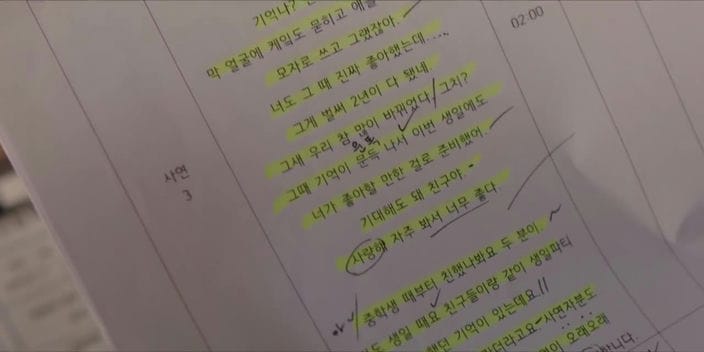 기억나?
막 얼굴에 케잌도 묻히고
모자로 쓰고 그랬잖아.
너도 그 때 진짜 좋아했는데.....
그게 벌써 2년이 다 됐네
그새 우리 참 많이 바뀌었다/그치?
그때 기억이 문득 나서 이번 생일에도
너가 좋아할 만한 걸로 준비했어.
기대해도 돼 친구야~
사랑해 자주 봐서 너무 좋다.
중학생 때부터 친했나봐요 두 분이.
생일 때요 친구들이랑 같이 생일파티
했던 기억이 있는데요
사연자분도
오래오래
합니다.
사연
3
02:00